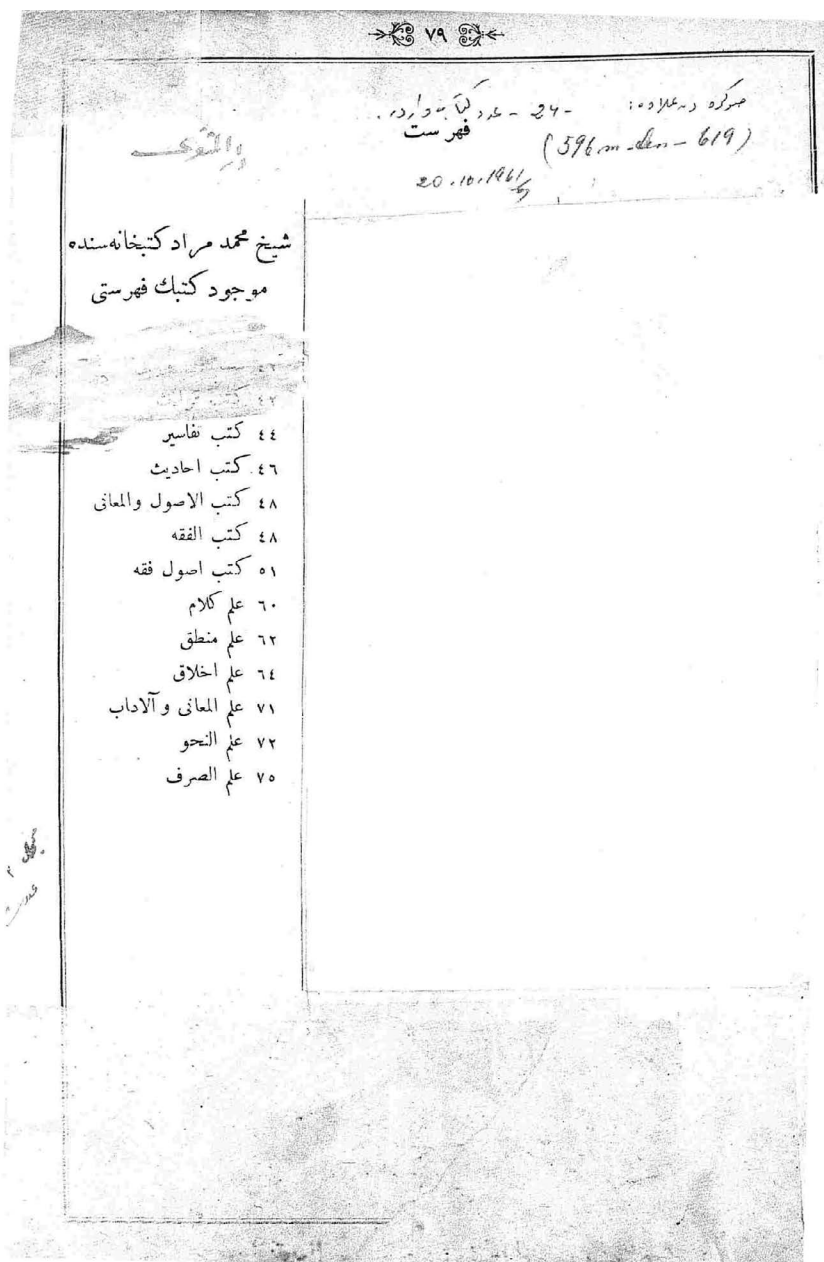 ٧٩
صوكره دن علاوه: -24- عدد كتاب واردر.
فهرست
(596 m-den-619)
20.10.1961
شيخ محمد مراد كتبخانه‌سنده
موجود كتبك فهرستى
٤٢ كتب
٤٤ كتب تفاسير
٤٦ كتب احاديث
٤٨ كتب الاصول والمعانى
٤٨ كتب الفقه
٥١ كتب اصول فقه
٦٠ علم كلام
٦٢ علم منطق
٦٤ علم اخلاق
٧١ علم المعانى و آلاداب
٧٢ علم النحو
٧٥ علم الصرف